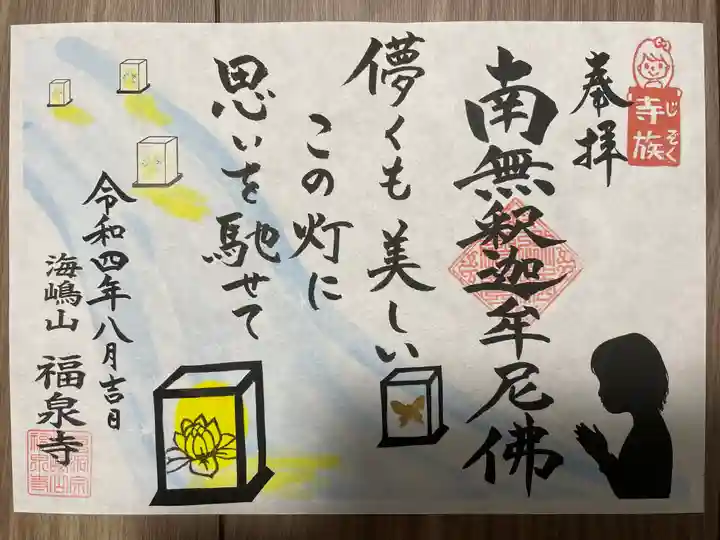 じぞく
寺族
奉拝
南無釈迦牟尼佛
儚くも美しい
この灯に
思いを馳せて
令和四年八月吉日
海嶋山 福泉寺